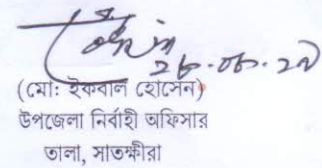 ২৮.০৮.১৯
(মো: ইকবাল হোসেন)
উপজেলা নির্বাহী অফিসার
তালা, সাতক্ষীরা